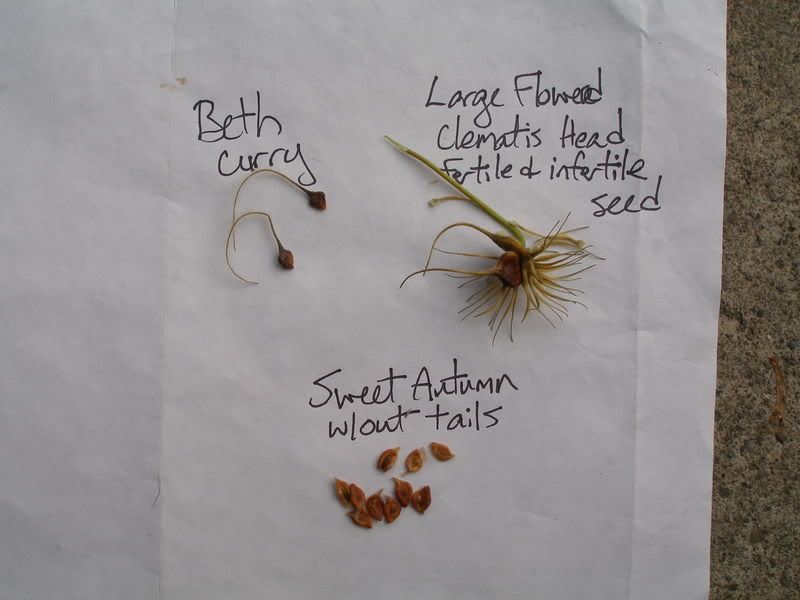 Beth
curry
Large Flowered
Clematis Head
fertile & infertile
seed
Sweet Autumn
w/out tails